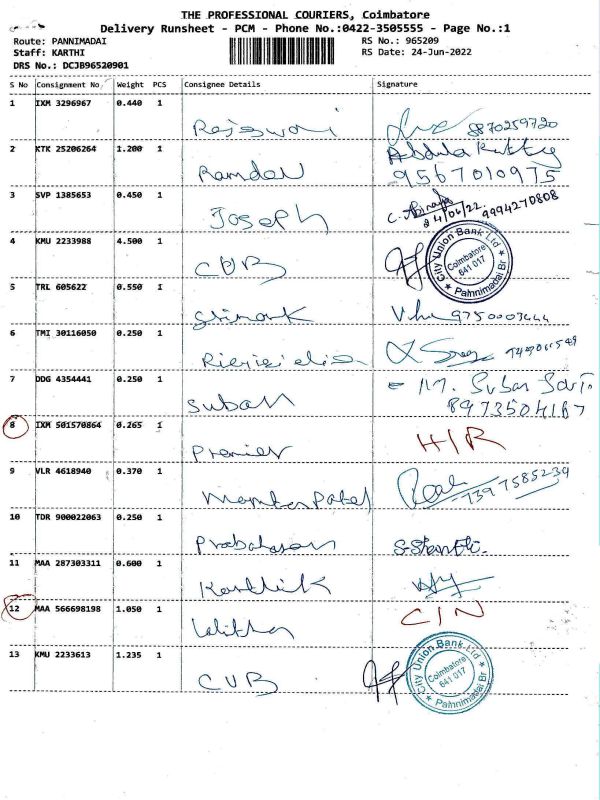 THE PROFESSIONAL COURIERS, Coimbatore
Delivery Runsheet - PCM - Phone No.:0422-3505555 - Page No.:1
Route: PANNIMADAI
RS No.: 965209
Staff: KARTHI
RS Date: 24-Jun-2022
DRS No.: DCJB96520901
S No Consignment No Weight PCS Consignee Details Signature
1 IXM 3296967 0.440 1
8870259720
2 KTK 25206264 1.200 1 Ramdev Abdula Kutty
9567010975
3 SVP 1385653 0.450 1 Joseph
24/06/22 9994270808
4 KMU 2233988 4.500 1 CUB
City Union Bank Ltd
Coimbatore
641 017
Pannimadai Br
5 TRL 605622 0.550 1
6 TMI 30116050 0.250 1
7 DDG 4354441 0.250 1 Suban
8973504187
8 IXM 501570864 0.265 1 Premier H/R
9 VLR 4618940 0.370 1 Patel
7397585239
10 TDR 900022063 0.250 1
11 MAA 287303311 0.600 1 Karthik
12 MAA 566698198 1.050 1 Lalitha C/N
13 KMU 2233613 1.235 1 CUB
City Union Bank Ltd
Coimbatore
641 017
Pannimadai Br